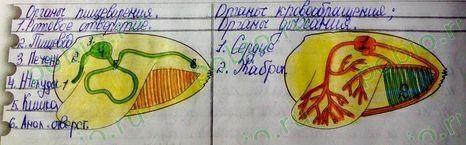 Органы пищеварения.
1. Ротовое отверстие.
2. Пищевод
3. Печень
4. Желудок
5. Кишка
6. Анал. отверст.
1
2
3
5
6
Органы кровообращения;
Органы дыхания.
1. Сердце
2. Жабры
1
2